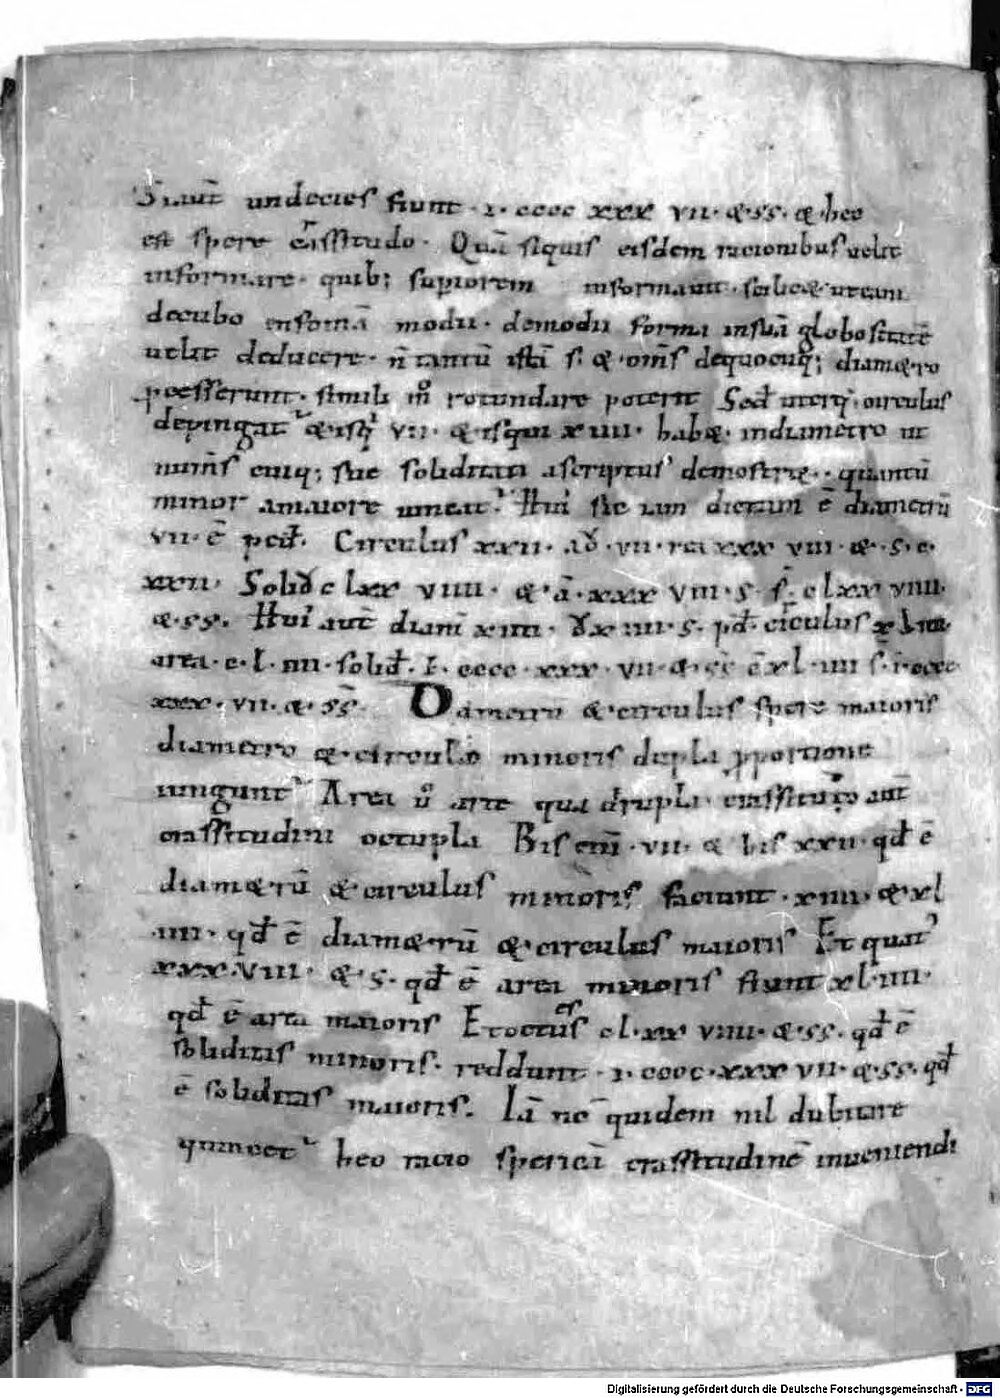 undecies fiunt · I · cccc xxx vii · & · ss · & hec
est spere c̄ssitudo · Quā siquis eisdem racionibus uelit
informare · quib; supiorem informauit · scilicet utcum
decubo insomā modū · demodii forma insuā globositatē
uelit deducere · n̄ tantū istā s; & · om̄s dequocūq; diam&ro
pcesserunt · simili m̊ rotundare poterit Sed uterq; circulus
depingat͛ & · istiꝰ vii · & isqui xiiii · hab& · indiametro ut
num̄s cuiq; sue soliditati ascriptus demostr& · quantū
minor amaiore uincat͛ Hui sic iam dictum ē diametrū
vii · ē ped̄ · Circulus xxii · ad̄ · vii · rei xxx viii · & · s · c ·
xxii · Solid̄ c lxx viiii · & · ā · xxx viii · s · s̄ · c lxx viiii ·
& · ss · Hui aut̄ diam̄ xiiii · s · pd̄ · circulus xliiii
area · c · l · iiii · solid̄ · I · cccc · xxx · vii · & · ss ē xl · iiii s̄ · I · cccc
xxx · vii · & · ss̄ Diametrū & · circulus spere maioris
diametro & · circulo minoris dupla pportione
iungunt͛ Area ū aree quadrupla · crassitudo aut̄
crassitudini octupla Bis enī · vii · & bis xxii · qd̄ ē
diam&rū & · circulus minoris faciunt · xiiii · & · xl
iiii · qd̄ ē diam&rū & · circulus maioris Et quat͛
xxx · viii · & · s · qd̄ ē area minoris fiunt xl · iiii ·
qd̄ ē area maioris Et octies cl · xx viiii · & · ss · qd̄ ē
soliditas minoris · reddunt · I · cccc · xxx vii · & · ss · qd̄
ē soliditas maioris · Iā nc̄ quidem nil dubitare
quin hec racio sperica crassitudinē inueniendi